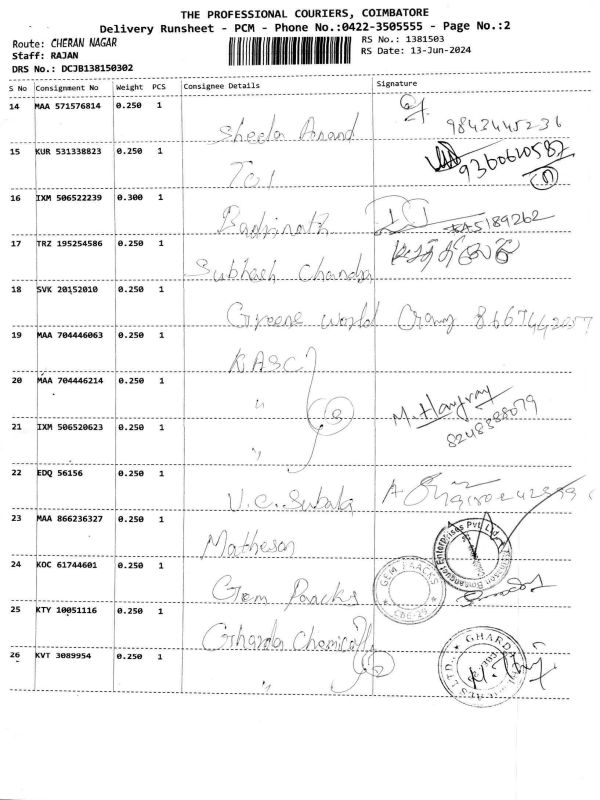 THE PROFESSIONAL COURIERS, COIMBATORE
Delivery Runsheet - PCM - Phone No.:0422-3505555 - Page No.:2
Route: CHERAN NAGAR
RS No.: 1381503
Staff: RAJAN
RS Date: 13-Jun-2024
DRS No.: DCJB138150302
S No Consignment No Weight PCS Consignee Details Signature
14 MAA 571576814 0.250 1
Sheela Anand 9843445236
15 KUR 531338823 0.250 1
TCI 9360610587
16 IXM 506522239 0.300 1
Badrinath
17 TRZ 195254586 0.250 1
Subhash Chandra
18 SVK 20152010 0.250 1
Greene world
19 MAA 704446063 0.250 1
KASC
20 MAA 704446214 0.250 1
" 3
21 IXM 506520623 0.250 1
" 8248388079
22 EDQ 56156 0.250 1
V.C. Subala
23 MAA 866236327 0.250 1
Matheson
Enterprises Pvt. Ltd.
24 KOC 61744601 0.250 1
Gem Paacks
GEM PAACKS
CBE-29
25 KTY 10051116 0.250 1
Gharda Chemicals
26 KVT 3089954 0.250 1
" 2
GHARDA
LTD.